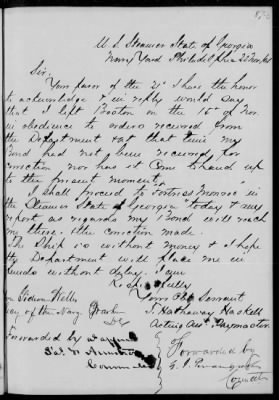 U.S. Steamer State of Georgia
Navy Yard Philadelphia 22 Nov
Sir.
Your favor of the 21st I have the honor
to acknowledge & in reply would say
that I left Boston on the 15th of Nov.
in obedience to orders received from
the Department at that time my
Bond had not been received for
correction nor has it come to hand up
to the present moment.
I shall proceed to Fortress Monroe in
the Steamer State of Georgia today & any
report as regards my Bond will reach
me there. The correction made.
The Ship is without money & I hope
the Department will place me in
funds without delay. I am
Respectfully
Your Obt Servant
Hon Gideon Welles
J. Hathaway Haskell
Secy of the Navy
Acting Asst Paymaster.
Forwarded
Forwarded by